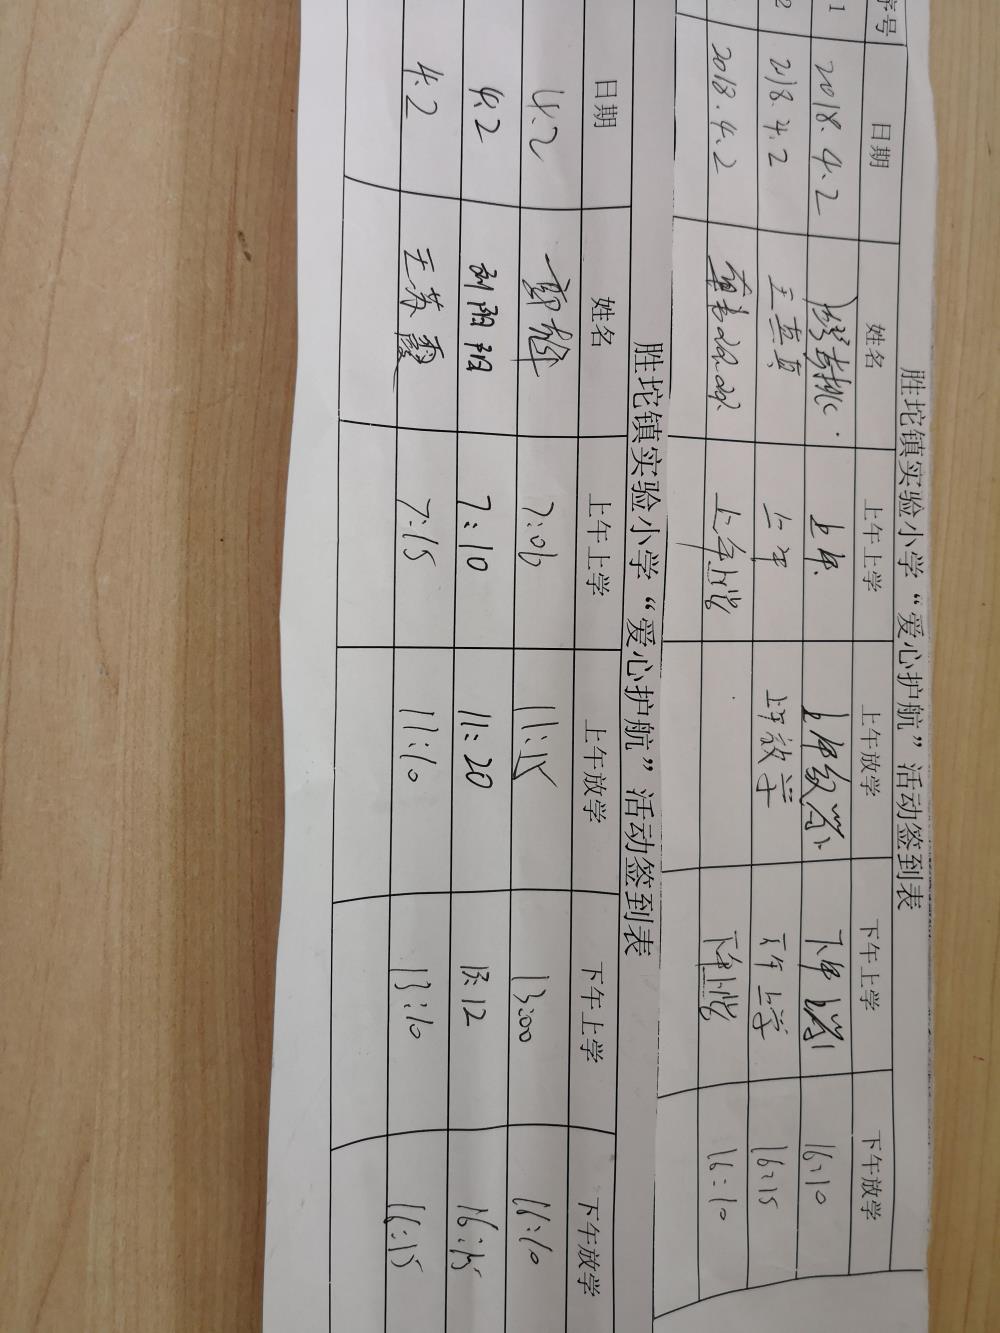 胜坨镇实验小学“爱心护航”活动签到表
序号 日期 姓名 上午上学 上午放学 下午上学 下午放学
1 2018.4.2 上午 上午放学 下午上学 16:10
2 218.4.2 王真真 上午 上午放学 下午上学 16:15
2018.4.2 上午上学 下午上学 16:10
胜坨镇实验小学“爱心护航”活动签到表
日期 姓名 上午上学 上午放学 下午上学 下午放学
4.2 7:06 11:15 13:00 16:10
4.2 刘阳阳 7:10 11:20 13:12 16:15
4.2 王苏霞 7:15 11:10 13:10 16:15